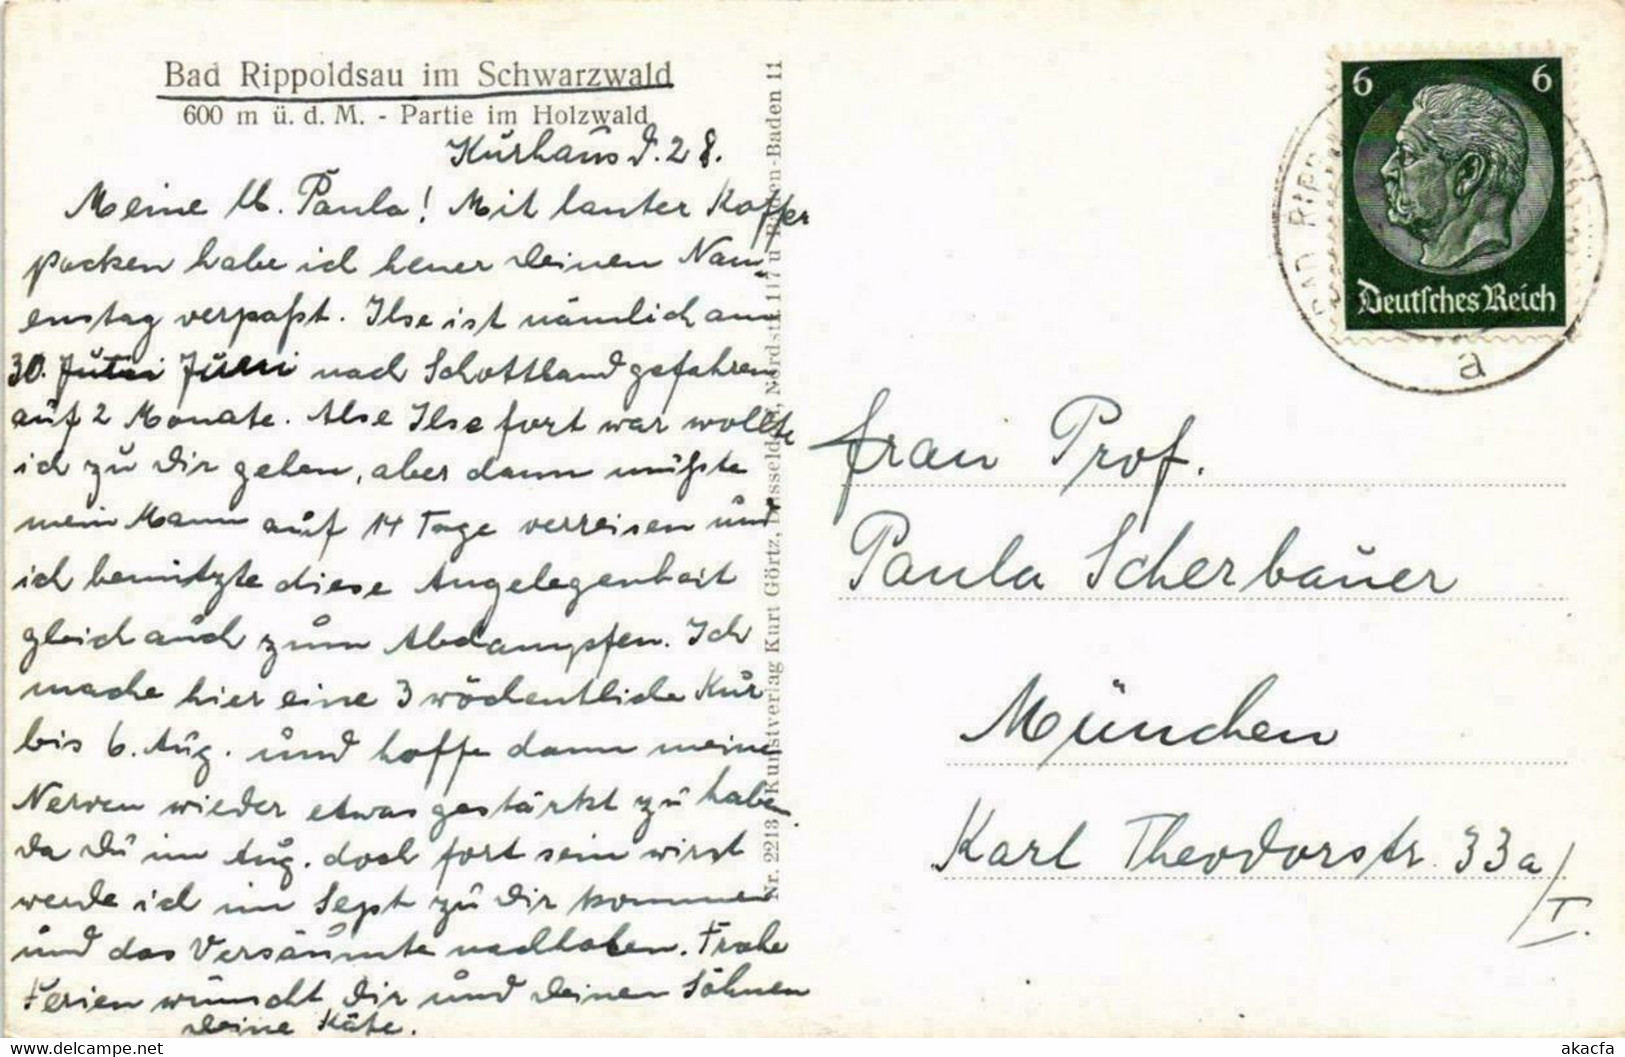 Bad Rippoldsau im Schwarzwald
600 m ü. d. M. - Partie im Holzwald
Kurhaus d. 28.
Meine lb. Paula! Mit lauter Koffer
packen habe ich heuer Deinen Nam-
enstag verpaßt. Ilse ist nämlich am
30. Juni Juni nach Schottland gefahren
auf 2 Monate. Als Ilse fort war wollte
ich zu Dir gehen, aber dann mußte
mein Mann auf 14 Tage verreisen und
ich benützte diese Angelegenheit
gleich auch zum Abdampfen. Ich
mache hier eine 3 wöchentliche Kur
bis 6. Aug. und hoffe dann meine
Nerven wieder etwas gestärkt zu haben.
Da Du im Aug. doch fort sein wirst
werde ich im Sept zu Dir kommen
und das Versäumte nachholen. Frohe
Ferien wünscht Dir und Deinen Söhnen
Deine Käte.
Nr. 2213 Kunstverlag Kurt Görtz, Düsseldorf, Nordstr. 117 u Baden-Baden 11
6 6
Deutsches Reich
BAD RIPP
a
Frau Prof.
Paula Scherbauer
München
Karl Theodorstr. 33a/I.
akacfa